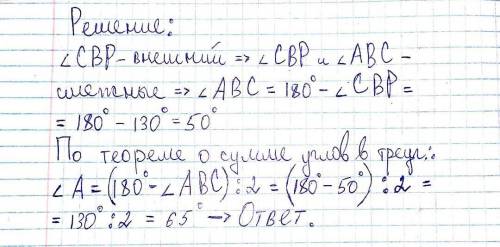 Решение:
∠CBP - внешний => ∠CBP и ∠ABC -
смежные => ∠ABC = 180° - ∠CBP =
= 180° - 130° = 50°
По теореме о сумме углов в треуг.:
∠A = (180° - ∠ABC) : 2 = (180° - 50°) : 2 =
= 130° : 2 = 65° → Ответ.